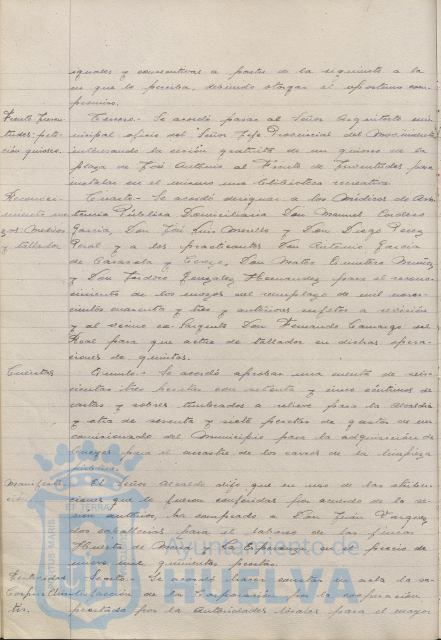 iguales y consecutivas a partir de la siguiente a la
en que lo perciba, debiendo otorgar el oportuno com-
promiso.
Frente Juven-
tudes: peti-
ción quiosco.
Tercero.- Se acordó pasar al Señor Arquitecto mu-
nicipal oficio del Señor Jefe Provincial del Movimiento
interesando la cesión gratuita de un quiosco de la
plaza de José Antonio al Frente de Juventudes para
instalar en el mismo una biblioteca recreativa.
Reconoci-
miento mo-
zos: Médicos
y tallador
Cuarto.- Se acordó designar a los Médicos de Asis-
tencia Pública Domiciliaria Don Manuel Cordero
García, Don José Luis Morillo y Don Diego Pérez
Peral y a los practicantes Don Antonio García
de Don Mateo Muñoz
y Don Isidoro González Hernández para el recono-
cimiento de los mozos del reemplazo de mil nove-
cientos cuarenta y tres y anteriores sujetos a revisión
y al vecino ex-Sargento Don Fernando Camargo del
Real para que actúe de tallador en dichas opera-
ciones de quintas.
Cuentas
Quinto.- Se acordó aprobar una cuenta de seis-
cientas tres pesetas con setenta y cinco céntimos de
cartas y sobres timbrados a relieve para la Alcaldía
y otra de sesenta y siete pesetas de gastos de un
comisionado del Municipio para la adquisición de
para el arrastre de los carros de la limpieza
pública.
Manifesta-
ción
El Señor Alcalde dijo que en uso de las atribu-
ciones que le fueron conferidas por acuerdo de la se-
sión anterior, ha comprado a Don Juan Vázquez
dos caballerías para el laboreo de las fincas
Huerta de y La Esperanza en el precio de
nueve mil quinientas pesetas.
Autoridades
Sexto.- Se acordó hacer constar en acta la sa-
tisfacción de la Corporación por la cooperación
prestada por las Autoridades locales para el mayor
Ayuntamiento de
HUELVA